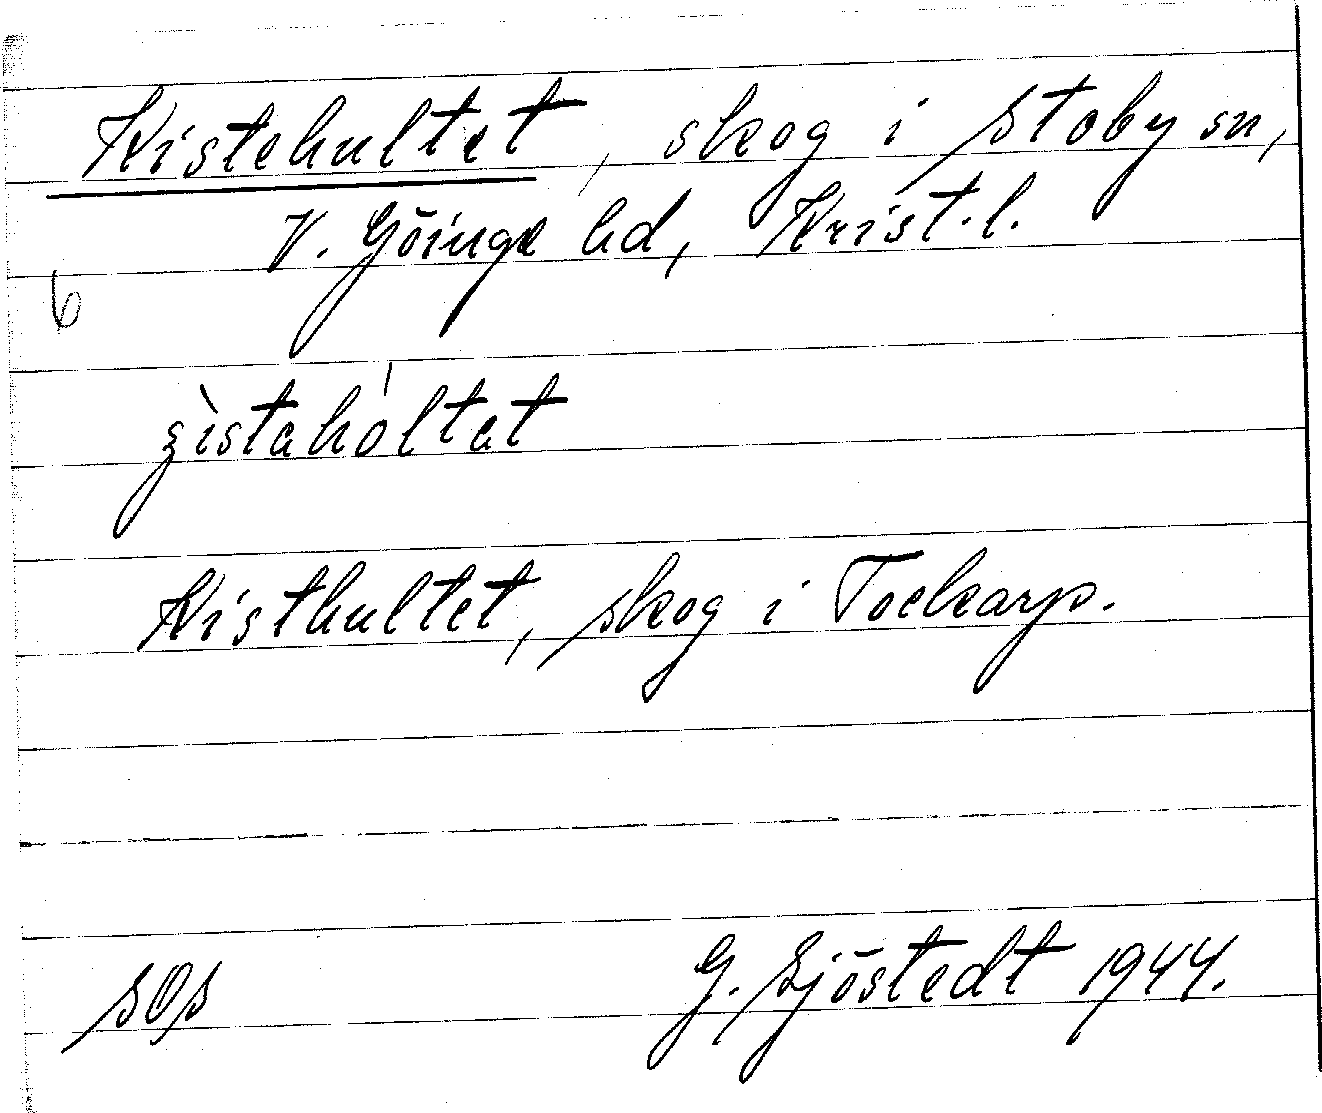 Kistehultet, skog i Stoby sn,
V. Göinge hd, Krist. l.
6
Kisthultet, skog i Tockarp.
SOS G. Sjöstedt 1944.